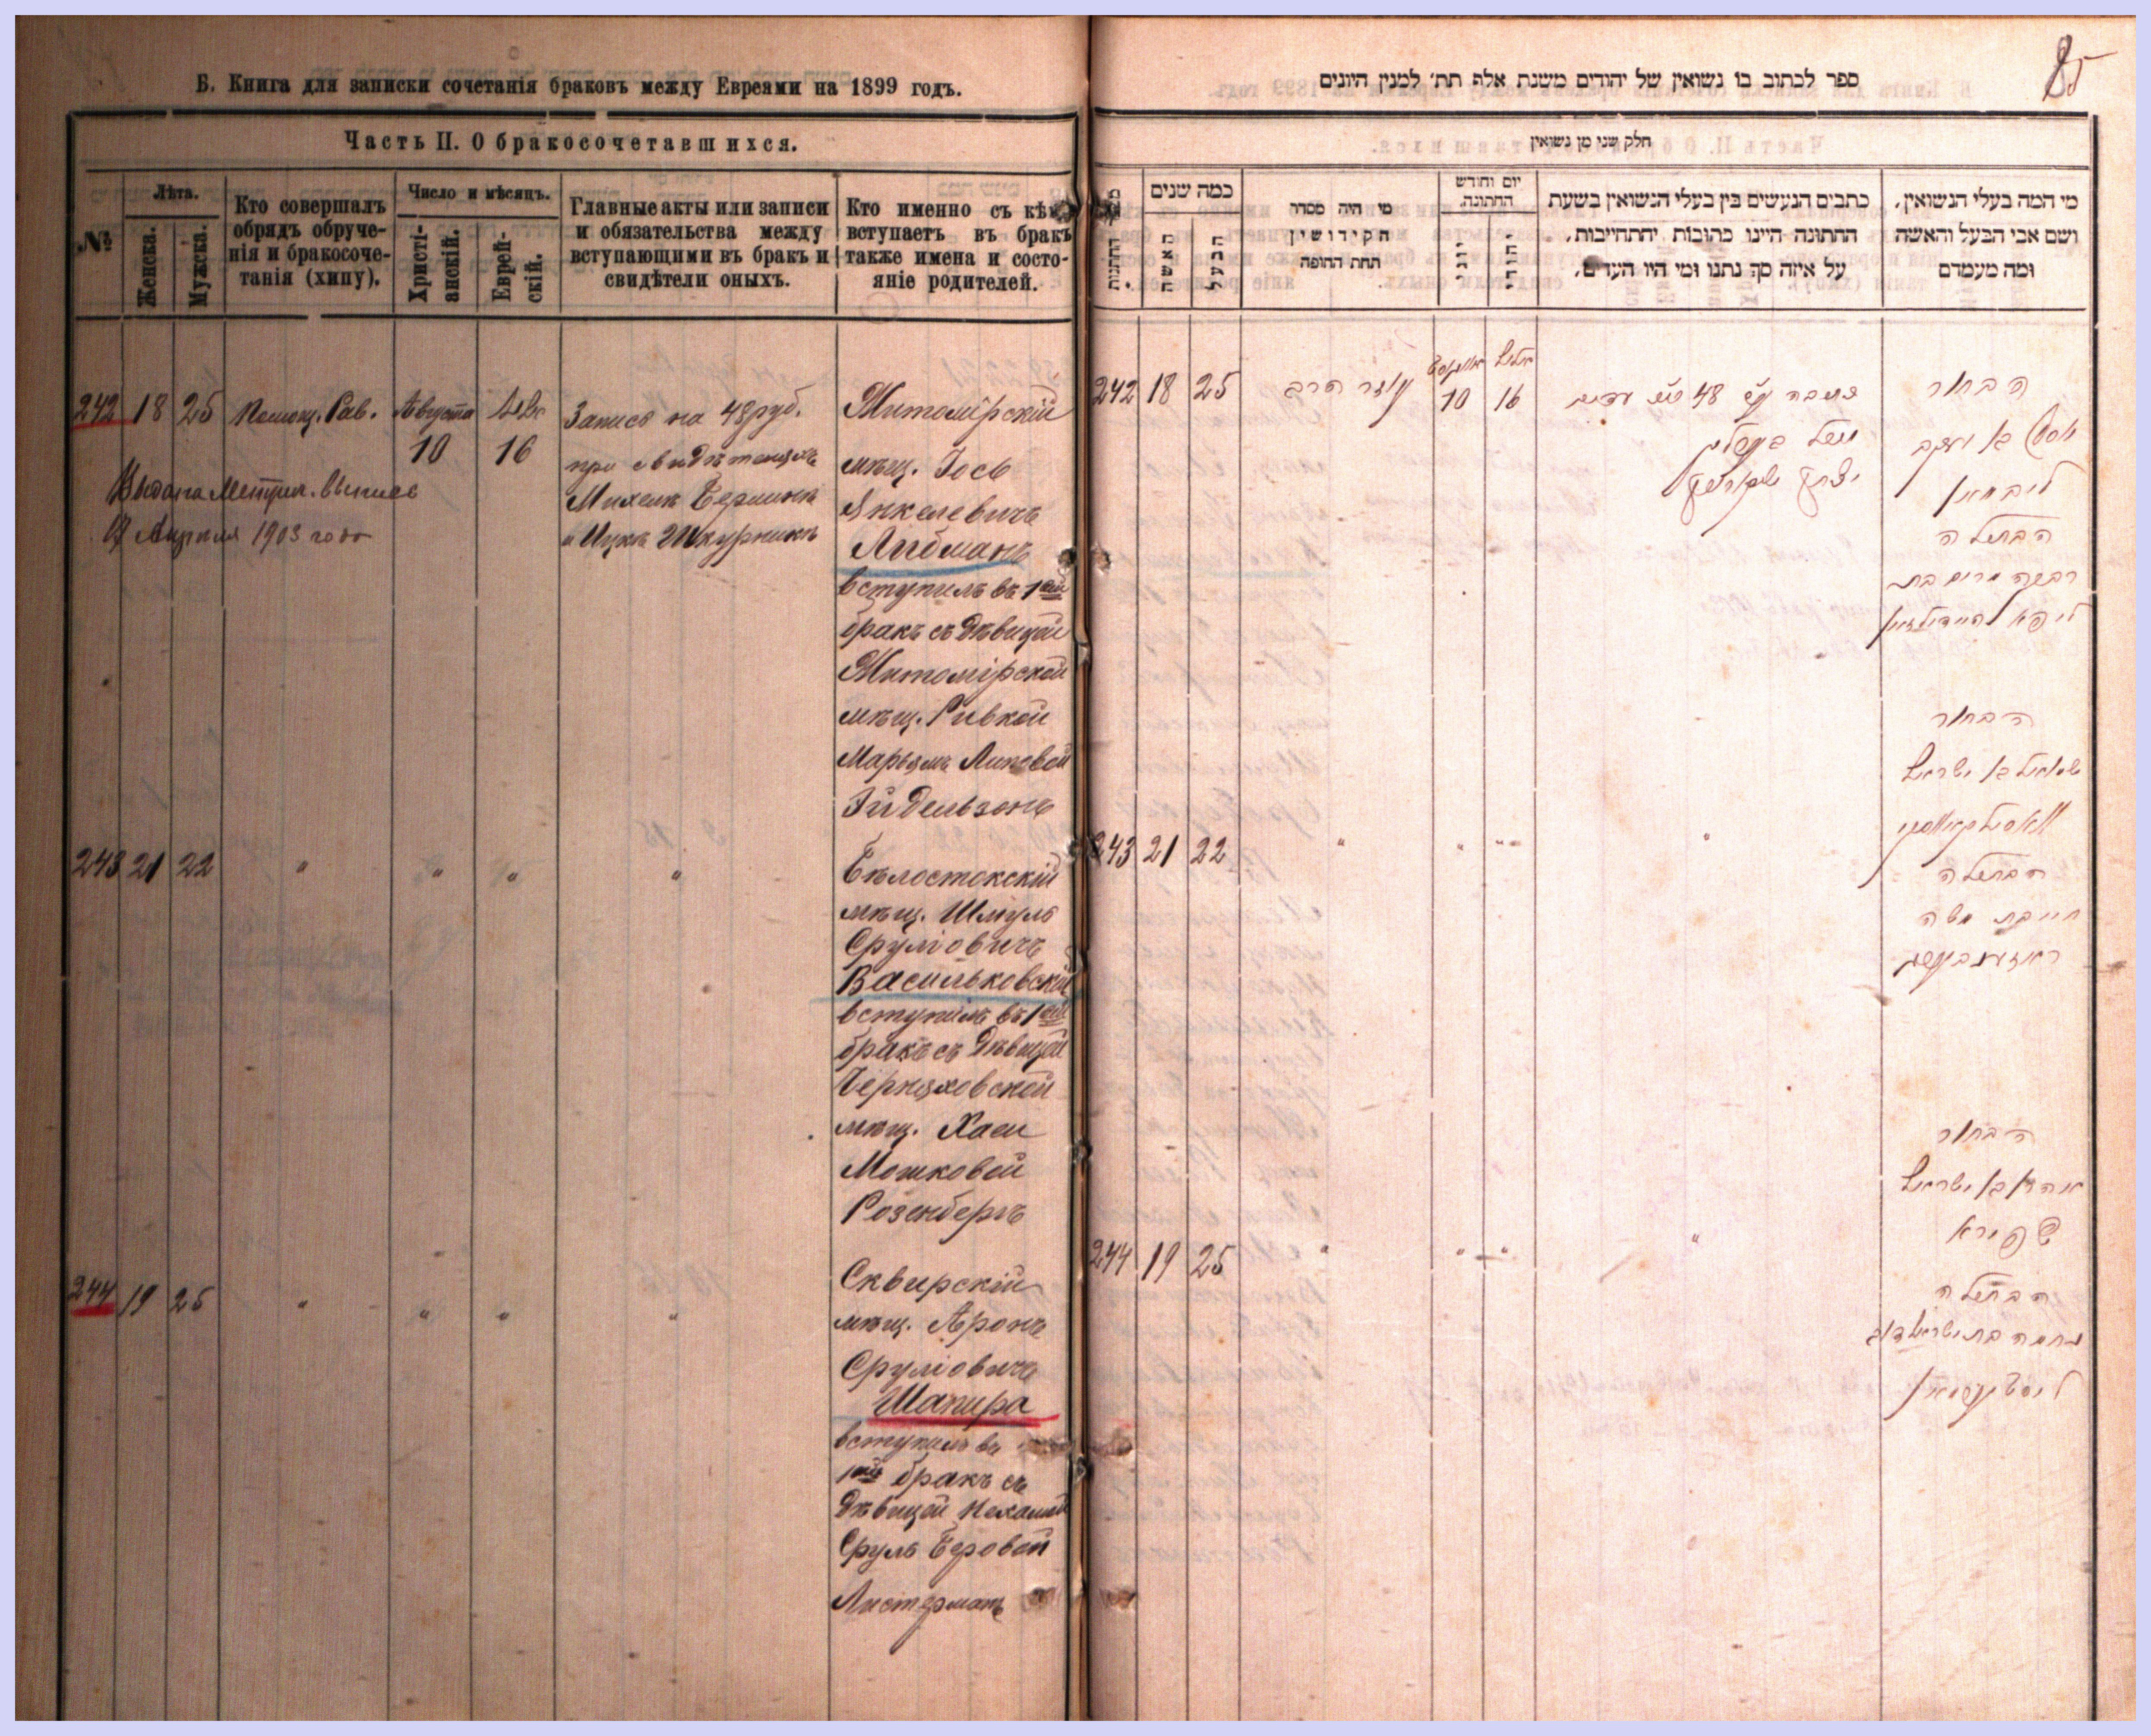 Б. Книга для записки сочетанія браковъ между Евреями на 1899 годъ.
Часть II. О бракосочетавшихся.
№
Лѣта.
Женска.
Мужска.
Кто совершалъ
обрядъ обруче-
нія и бракосоче-
танія (хипу).
Число и мѣсяцъ.
Христі-
анскій.
Еврей-
скій.
Главные акты или записи
и обязательства между
вступающими въ бракъ и
свидѣтели оныхъ.
Кто именно съ кѣмъ
вступаетъ въ бракъ
также имена и состо-
яніе родителей.
242 18 25 Помощ. Рав. Августа
10 16
Запись на 48 руб.
при свидѣтеляхъ
Выдана Метрич. выпись
17 Апреля 1903 года
Житомірскій
мѣщ. Іось
Янкелевичъ
Либманъ
вступилъ въ 1ый
бракъ съ дѣвицей
Житомірской
мѣщ. Ривкой
Марьямъ Липовой
Эйдельзонъ
243 21 22 " " " "
Бѣлостокскій
мѣщ. Шмуль
Сруліовичъ
Васильковскій
вступилъ въ 1ый
бракъ съ дѣвицей
Черняховской
мѣщ. Хаей
Мошковой
Розенбергъ
244 19 25 " " " "
Сквирскій
мѣщ. Аронъ
Сруліовичъ
Шапира
вступилъ въ
1ый бракъ съ
дѣвицей Нехамой
Сруль Беровой
Листерманъ
85
ספר לכתוב בו נשואין של יהודים משנת אלף תת׳ למנין היונים
חלק שני מן נשואין
כמה שנים
האשה
הבעל
מי היה מסדר
הקידושין
תחת החופה
יום וחודש
החתונה
יוני
יהודי
כתבים הנעשים בין בעלי הנשואין בשעת
החתונה היינו כתובות יהתחייבות,
על איזה סך נתנו ומי היו העדים,
מי המה בעלי הנשואין,
ושם אבי הבעל והאשה
ומה מעמדם
242 18 25 עוזר הרב
אויגוסט 10
אלול 16
הבחור
יוסף בן יעקב
ליבמאן
הבתולה
רבקה מרים בת
ליפא
243 21 22 " " " "
הבחור
שמואל בן ישראל
הבתולה
חי׳ בת משה
ראזענבערג
244 19 25 " " " "
הבחור
אהרן בן ישראל
שפירא
הבתולה
נחמה בת ישראל דוב